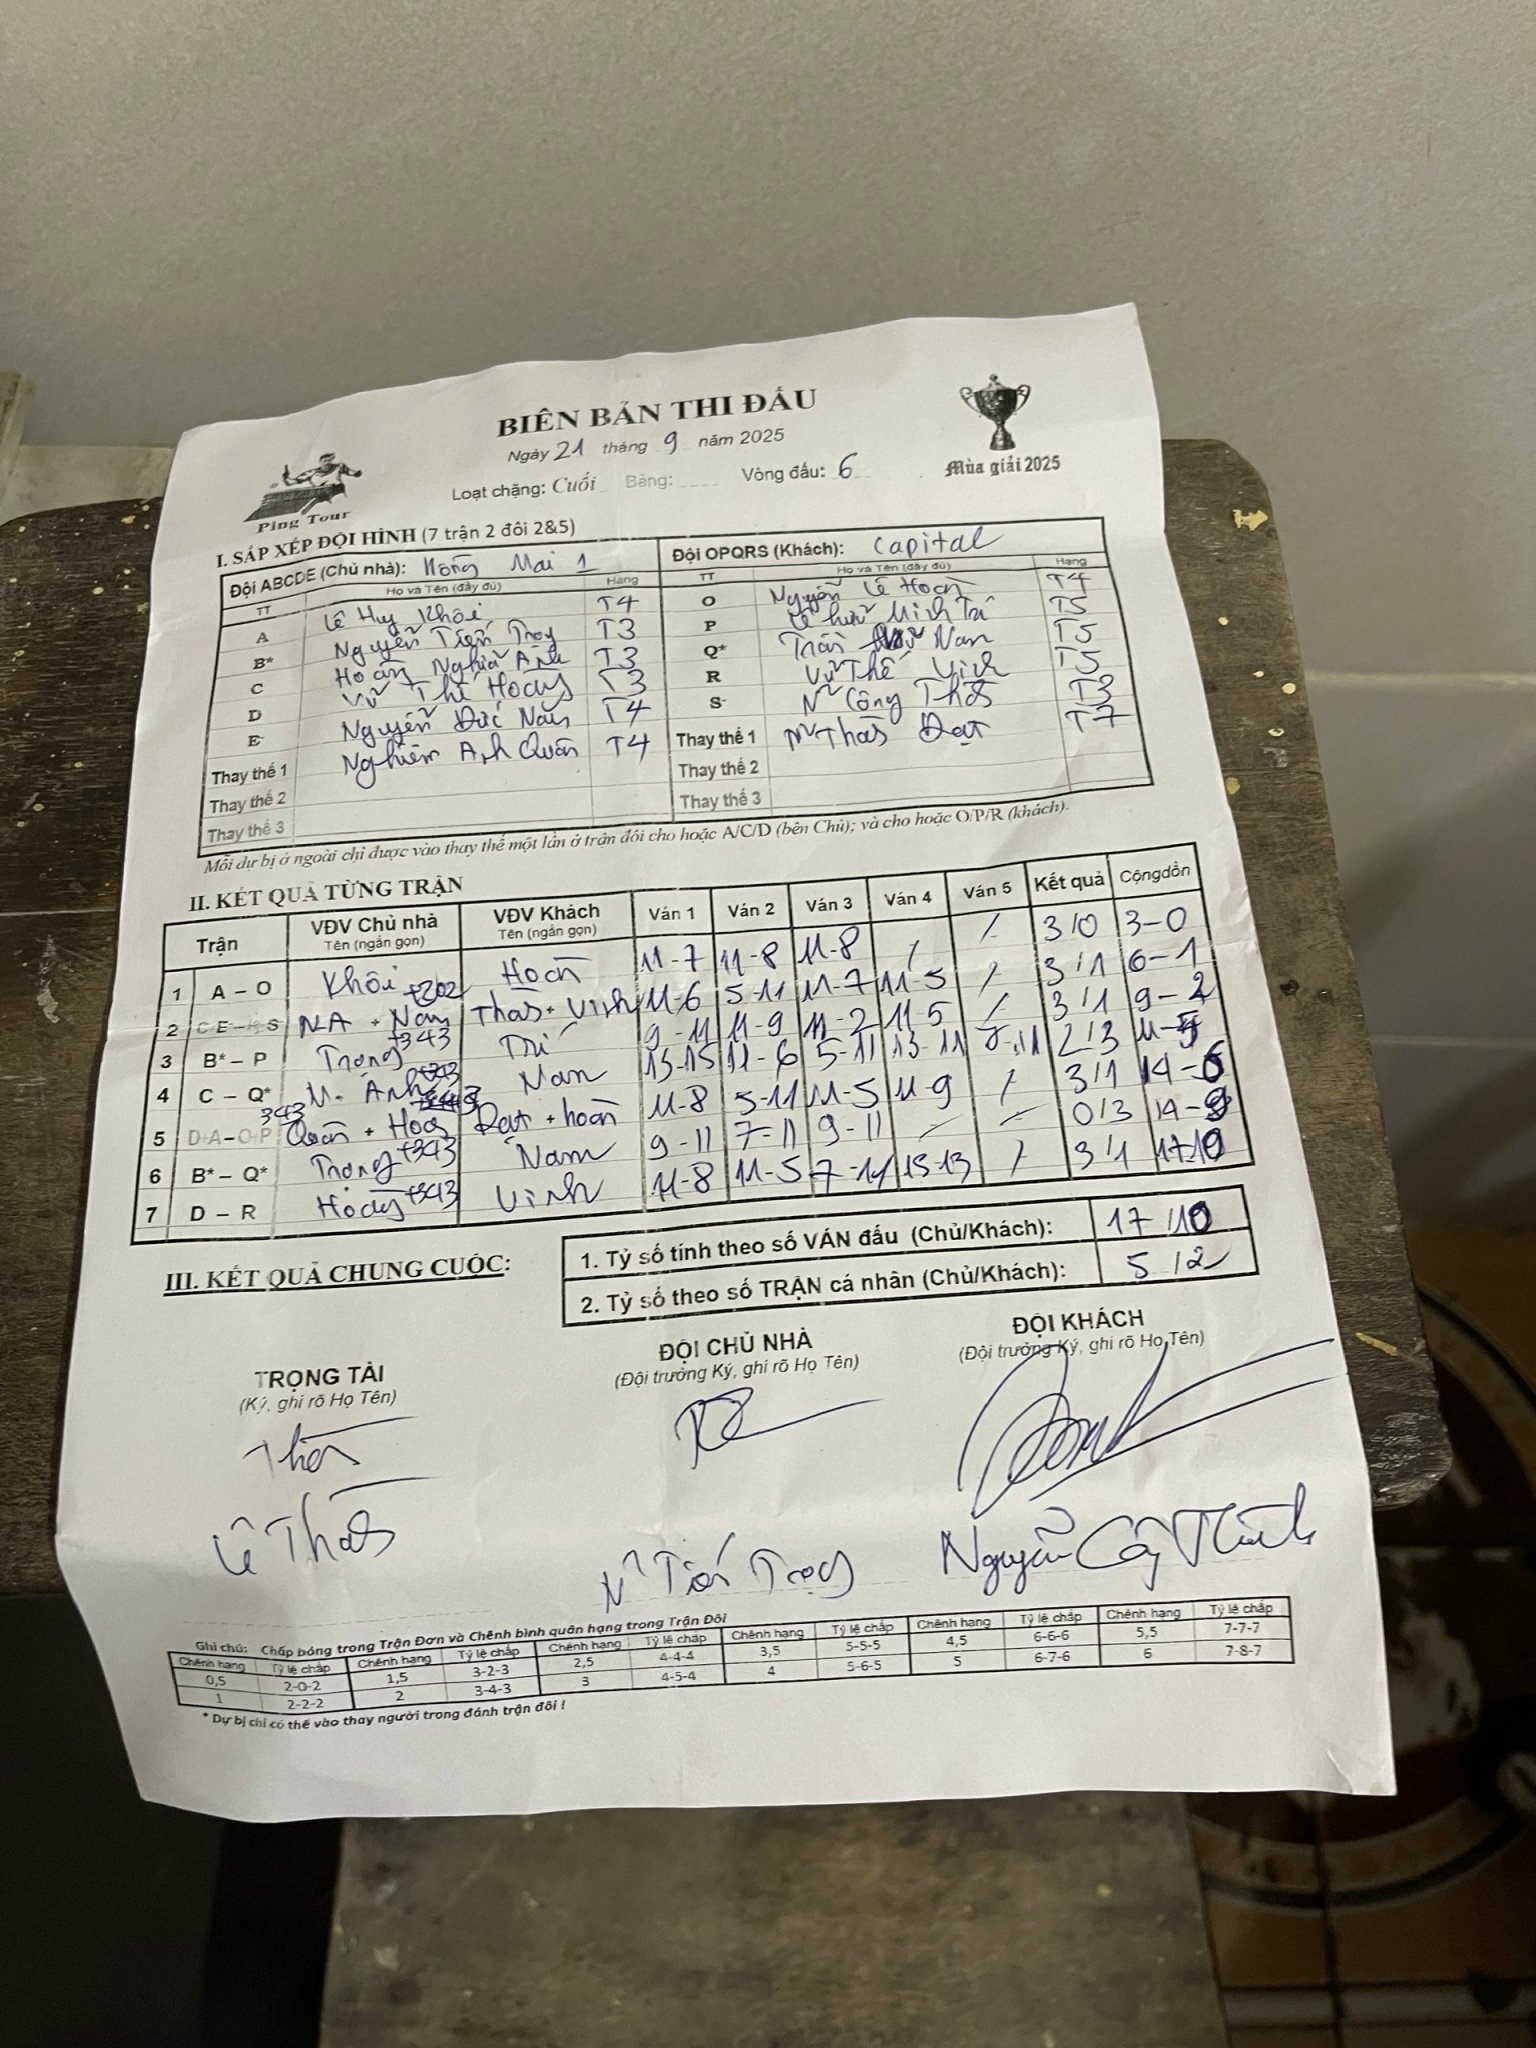 BIÊN BẢN THI ĐẤU
Ngày 21 tháng 9 năm 2025
Loạt chặng: Cuối Bảng: Vòng đấu: 6
Ping Tour
Mùa giải 2025
I. SẮP XẾP ĐỘI HÌNH (7 trận 2 đôi 2&5)
Đội ABCDE (Chủ nhà): Hồng Mai 1
TT Họ và Tên (đầy đủ) Hạng
A Lê Huy Khôi T4
B* Nguyễn Tiến Trọng T3
C Hoàng Nghĩa Ánh T3
D Vũ Thế Hoàng T3
E Nguyễn Đức Nam T4
Thay thế 1 Nghiêm Anh Quân T4
Thay thế 2
Thay thế 3
Đội OPQRS (Khách): Capital
TT Họ và Tên (đầy đủ) Hạng
O Nguyễn Lê Hoàn T4
P Lê hữu Minh Trí T5
Q* Trần Nam T5
R Vũ Thế Vinh T5
S N Công Thành T3
Thay thế 1 Nguyễn Thành Đạt T7
Thay thế 2
Thay thế 3
Mỗi dự bị ở ngoài chỉ được vào thay thế một lần ở trận đôi cho hoặc A/C/D (bên Chủ); và cho hoặc O/P/R (khách).
II. KẾT QUẢ TỪNG TRẬN
Trận VĐV Chủ nhà Tên (ngắn gọn) VĐV Khách Tên (ngắn gọn) Ván 1 Ván 2 Ván 3 Ván 4 Ván 5 Kết quả Cộng dồn
1 A – O Khôi Hoàn 11-7 11-8 11-8 / / 3/0 3-0
2 N.A + Nam +202 + Vinh 11-6 5-11 11-7 11-5 / 3/1 6-1
3 B* – P Trọng +343 Trí 9-11 11-9 11-2 11-5 / 3/1 9-2
4 C – Q* N. Ánh +343 Nam 13-15 11-6 5-11 13-11 2/3 11-5
5 D+A – O+P 343 Quân + Hoàng Đạt + hoàn 11-8 5-11 11-5 11-9 / 3/1 14-6
6 B* – Q* Trọng +343 Nam 9-11 7-11 9-11 – – 0/3 14-9
7 D – R Hoàng +343 Vinh 11-8 11-5 7-11 15-13 / 3/1 17-10
III. KẾT QUẢ CHUNG CUỘC:
1. Tỷ số tính theo số VÁN đấu (Chủ/Khách): 17/10
2. Tỷ số theo số TRẬN cá nhân (Chủ/Khách): 5/2
TRỌNG TÀI
(Ký, ghi rõ Họ Tên)
ĐỘI CHỦ NHÀ
(Đội trưởng Ký, ghi rõ Họ Tên)
ĐỘI KHÁCH
(Đội trưởng Ký, ghi rõ Họ Tên)
N Tiến Trọng
Ghi chú: Chấp bóng trong Trận Đơn và Chênh bình quân hạng trong Trận Đôi
Chênh hạng Tỷ lệ chấp Chênh hạng Tỷ lệ chấp Chênh hạng Tỷ lệ chấp Chênh hạng Tỷ lệ chấp Chênh hạng Tỷ lệ chấp Chênh hạng Tỷ lệ chấp
0,5 2-0-2 1,5 3-2-3 2,5 4-4-4 3,5 5-5-5 4,5 6-6-6 5,5 7-7-7
1 2-2-2 2 3-4-3 3 4-5-4 4 5-6-5 5 6-7-6 6 7-8-7
* Dự bị chỉ có thể vào thay người trong đánh trận đôi !